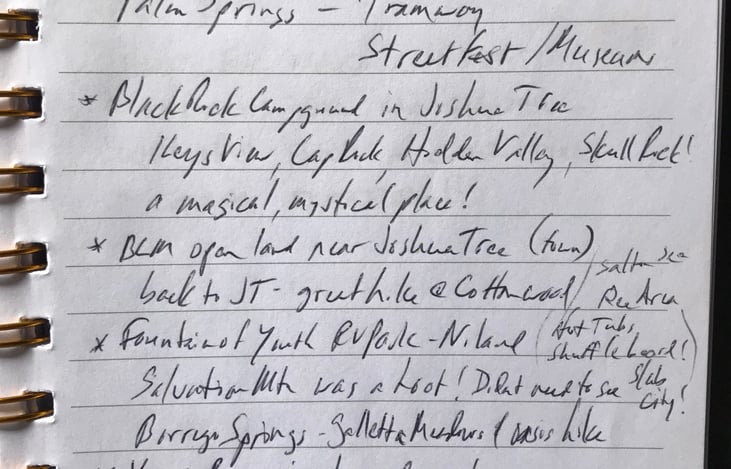 Palm Springs - Tramway
Streetfest/Museum
* Black Rock Campground in Joshua Tree
Keys View, Cap Rock, Hidden Valley, Skull Rock!
a magical, mystical place!
* BLM open land near Joshua Tree (town)
back to JT - great hike @ Cottonwood / Salton Sea
Rec Area
* Fountain of Youth RV Park - Niland (Hot Tubs,
shuffleboard!)
Salvation Mtn was a hoot! Didn't need to see Slab
City!
Borrego Springs - Galleta Meadows / oasis hike